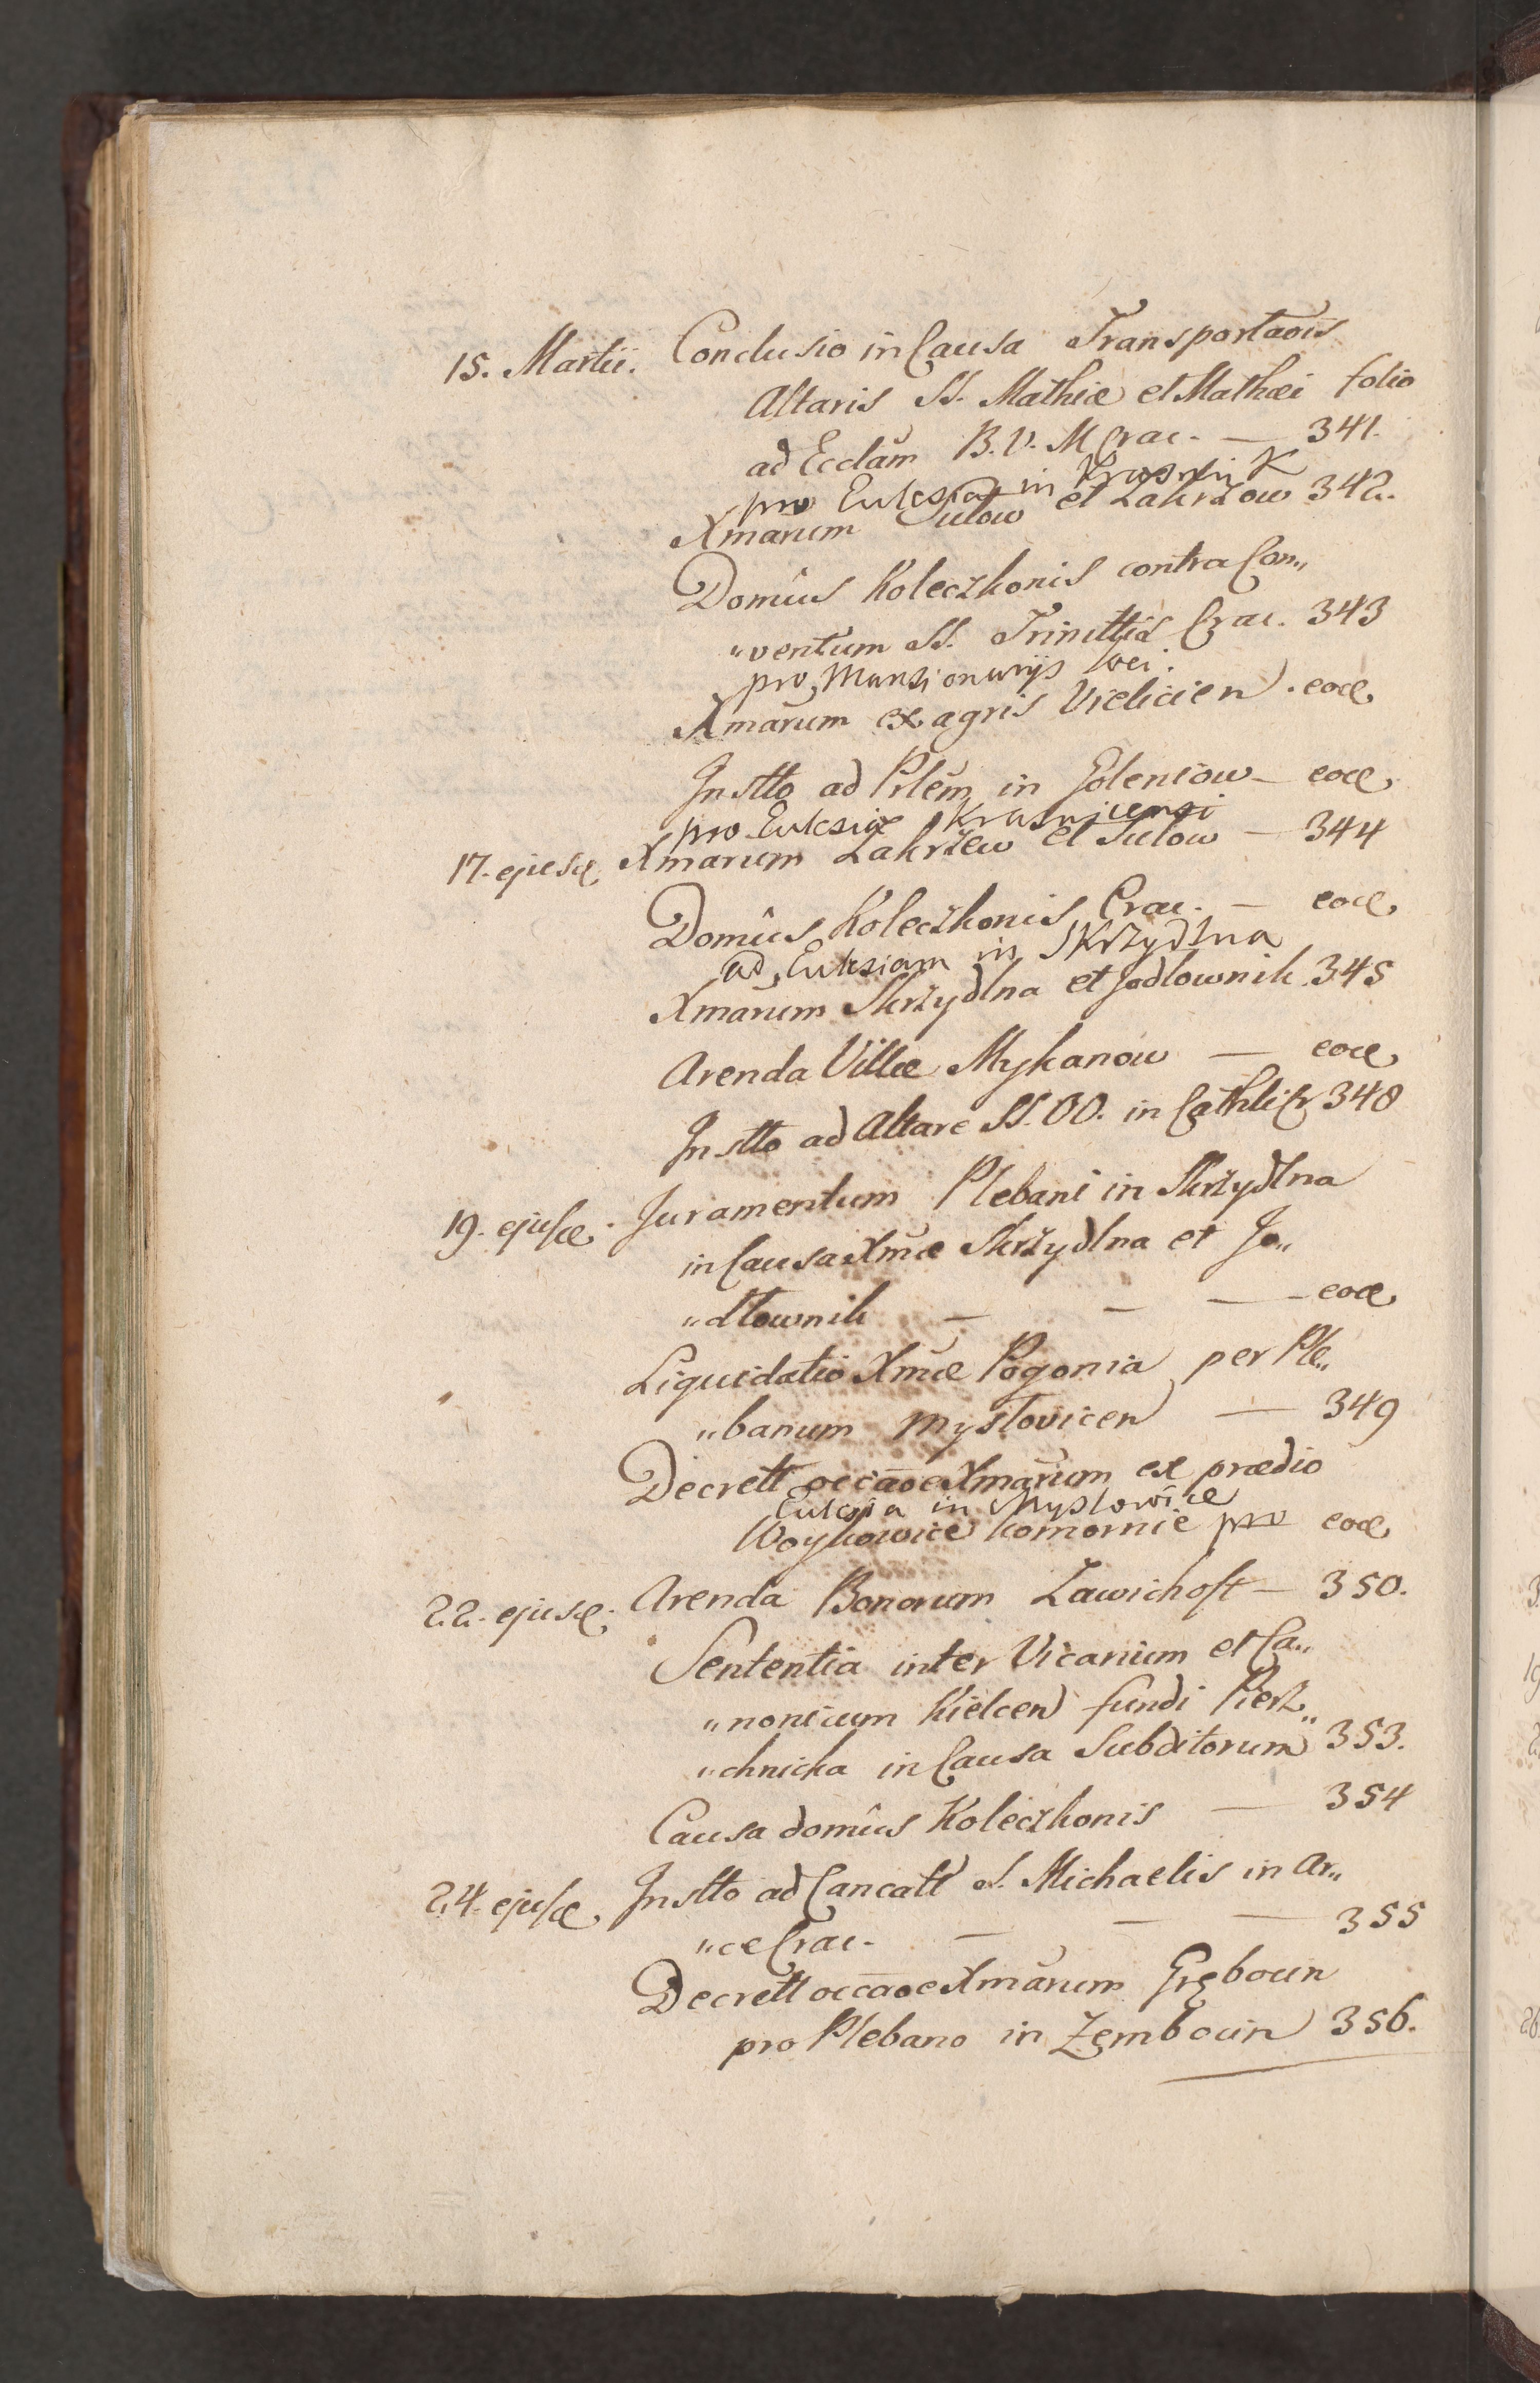 15. Martii. Conclusio in Causa Transportaōis
Altaris SS. Mathiæ et Mathæi folio
ad Ecclām B. V. M Crac. — 341.
pro Eulesia in Krasnik
Xmarum Sulow et Zakrzow 342.
Domûs Koleczkonis contra Con„
„ventum SS. Trinittis Crac. 343
pro Mansionarijs loci.
Xmarum ex agris Vielicien. eod
Instto ad Prlem in Goleniow — eod
pro Eulesiæ Krasnicensi
17. ejusd Xmarum Zakrzew et Sulow — 344
Domûs Koleczkonis Crac. — eod
ad Eulesiam in Skrzydlna
Xmarum Skrzydlna et Jodlownik. 345
Arenda Villæ Mykanow — eod
Instto ad Altare SS. OO. in Cathli Cr 348
19. ejusd. Juramentum Plebani in Skrzydlna
in Causa Xmæ Skrzydlna et Jo„
„dlownik — — — eod
Liquidatio Xmæ Pogonia per Ple„
„banum Myslovicen — 349
Decrett occaōe Xmarum ex prædio
Eulesia in Myslowice
Woykowice komornie pro eod
22. ejusd. Arenda Bonorum Zawichost — 350.
Sententia inter Vicarium et Ca„
„nonicum Kielcen fundi Pierz„
„chnicka in Causa Subditorum 353.
Causa domûs Koleczkonis — 354
24. ejusd. Instto ad Cancatt S. Michaelis in Ar„
„ce Crac. — — — 355
Decrett occaōe Xmarum Grębocin
pro Plebano in Zembocin 356.